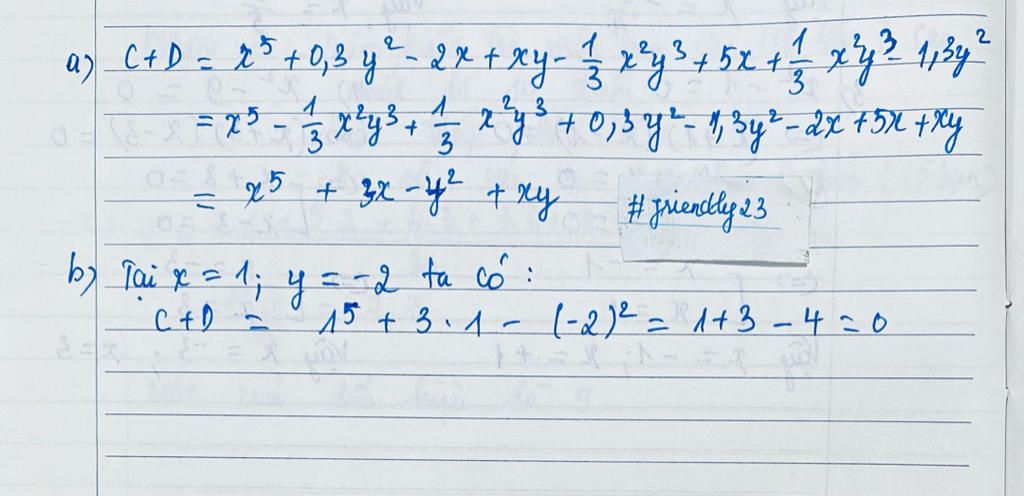 a) C+D = x⁵ + 0,3y² - 2x + xy - 1/3 x²y³ + 5x + 1/3 x²y³ - 1,3y²
= x⁵ - 1/3 x²y³ + 1/3 x²y³ + 0,3y² - 1,3y² - 2x + 5x + xy
= x⁵ + 3x - y² + xy
#friendly23
b) Tại x = 1; y = -2 ta có:
C+D = 1⁵ + 3 · 1 - (-2)² = 1 + 3 - 4 = 0